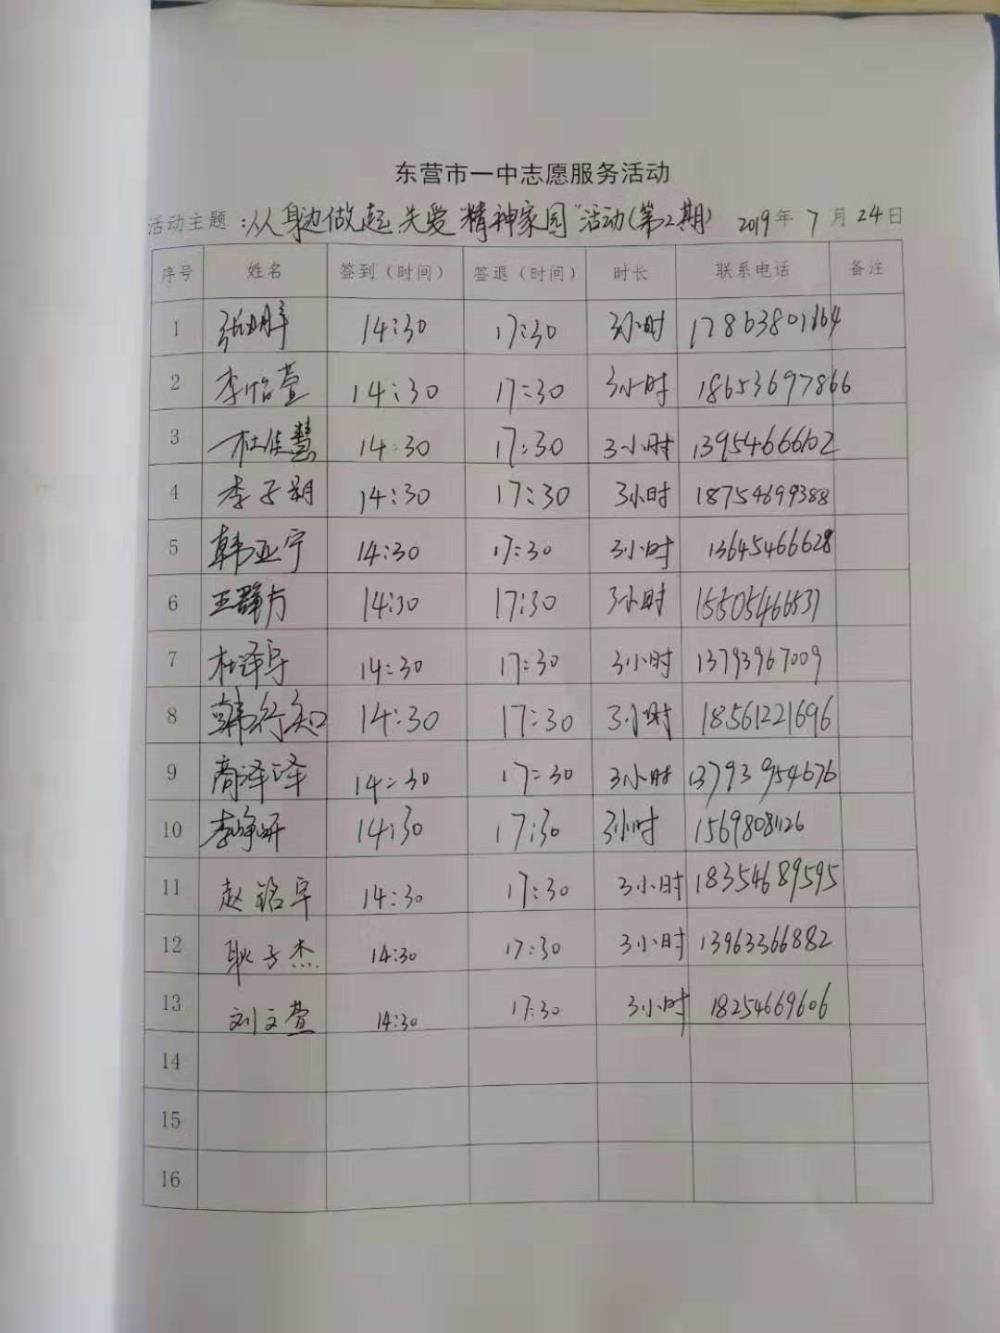 东营市一中志愿服务活动
活动主题：从身边做起 关爱"精神家园"活动(第2期) 2019年 7月 24日
序号 姓名 签到（时间） 签退（时间） 时长 联系电话 备注
1 14:30 17:30 3小时 17863801864
2 李怡萱 14:30 17:30 3小时 18653697866
3 杜佳慧 14:30 17:30 3小时 13954666602
4 李子玥 14:30 17:30 3小时 18754699388
5 韩亚宁 14:30 17:30 3小时 13645466628
6 王群方 14:30 17:30 3小时 15505466537
7 杜泽宇 14:30 17:30 3小时 13793967009
8 韩行知 14:30 17:30 3小时 18561221696
9 商泽泽 14:30 17:30 3小时 13793954676
10 李峥妍 14:30 17:30 3小时
11 赵铭宇 14:30 17:30 3小时 18354689595
12 耿子杰 14:30 17:30 3小时 13963366882
13 刘文萱 14:30 17:30 3小时 18254669606
14
15
16